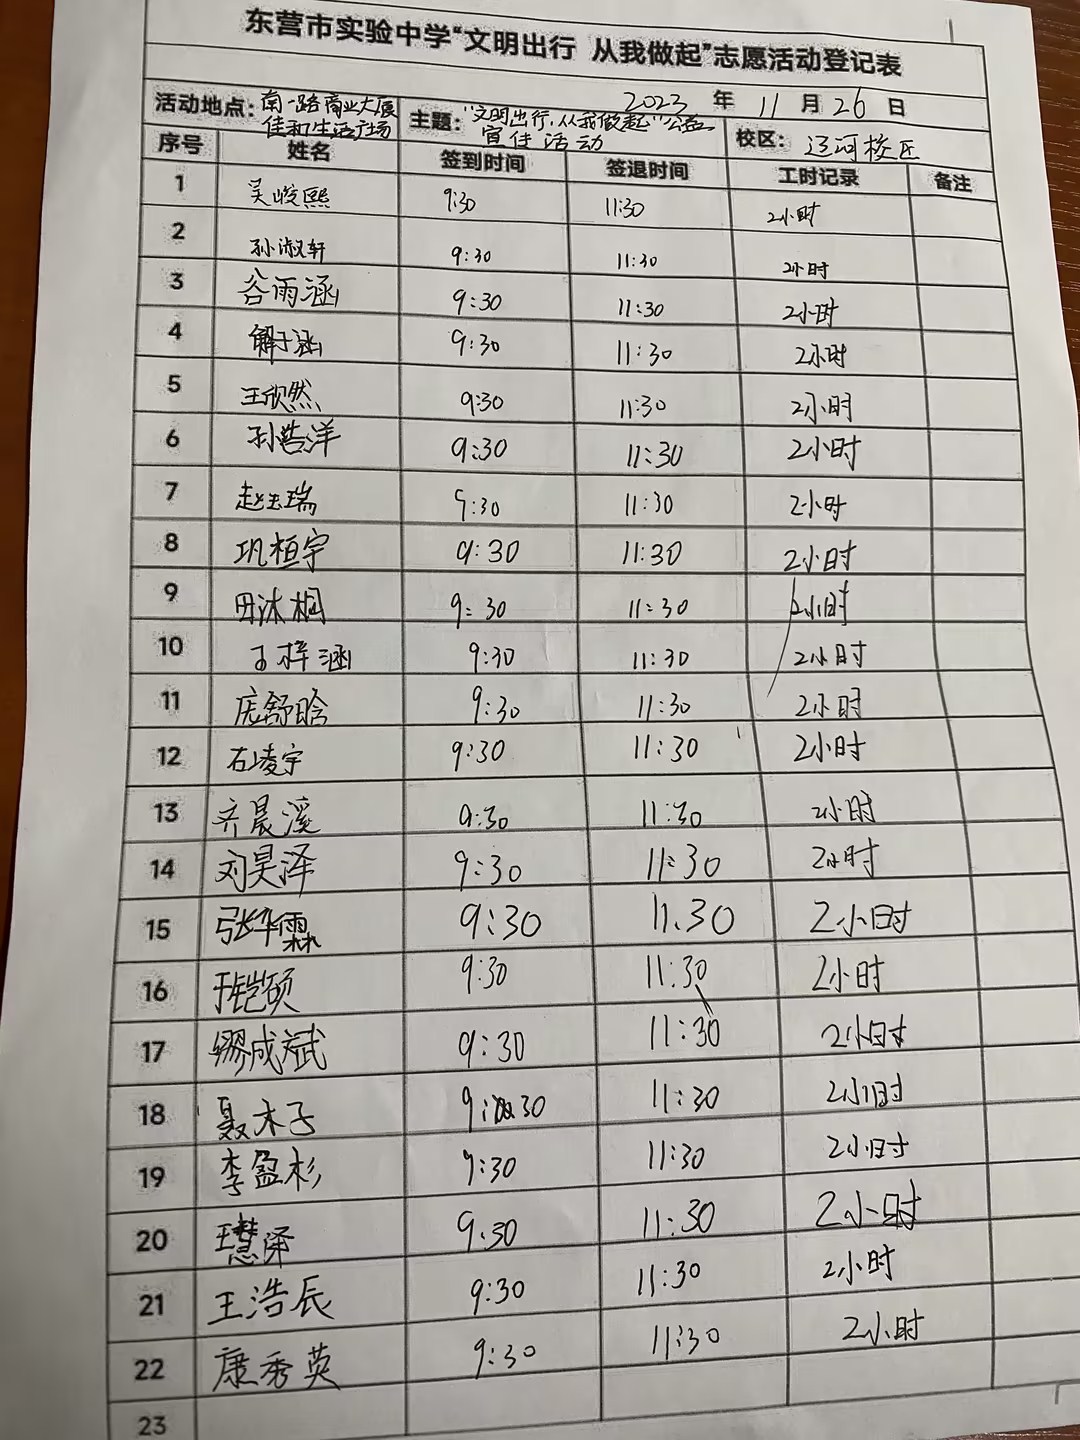 东营市实验中学“文明出行 从我做起”志愿活动登记表
2023 年 11 月 26 日
活动地点：南一路商业大厦 佳和生活广场 主题：“文明出行，从我做起”公益 宣传活动 校区：运河校区
序号 姓名 签到时间 签退时间 工时记录 备注
1 吴峻熙 9:30 11:30 2小时
2 孙淑轩 9:30 11:30 2小时
3 谷雨涵 9:30 11:30 2小时
4 解于涵 9:30 11:30 2小时
5 王欣然 9:30 11:30 2小时
6 孙浩洋 9:30 11:30 2小时
7 赵玉瑞 9:30 11:30 2小时
8 巩桓宇 9:30 11:30 2小时
9 田沐桐 9:30 11:30 2小时
10 王梓涵 9:30 11:30 2小时
11 庞舒晗 9:30 11:30 2小时
12 石凌宇 9:30 11:30 2小时
13 齐晨溪 9:30 11:30 2小时
14 刘昊泽 9:30 11:30 2小时
15 张华霖 9:30 11:30 2小时
16 于铠硕 9:30 11:30 2小时
17 缪成斌 9:30 11:30 2小时
18 聂木子 9:30 11:30 2小时
19 李盈杉 9:30 11:30 2小时
20 王慧泽 9:30 11:30 2小时
21 王浩辰 9:30 11:30 2小时
22 康秀英 9:30 11:30 2小时
23